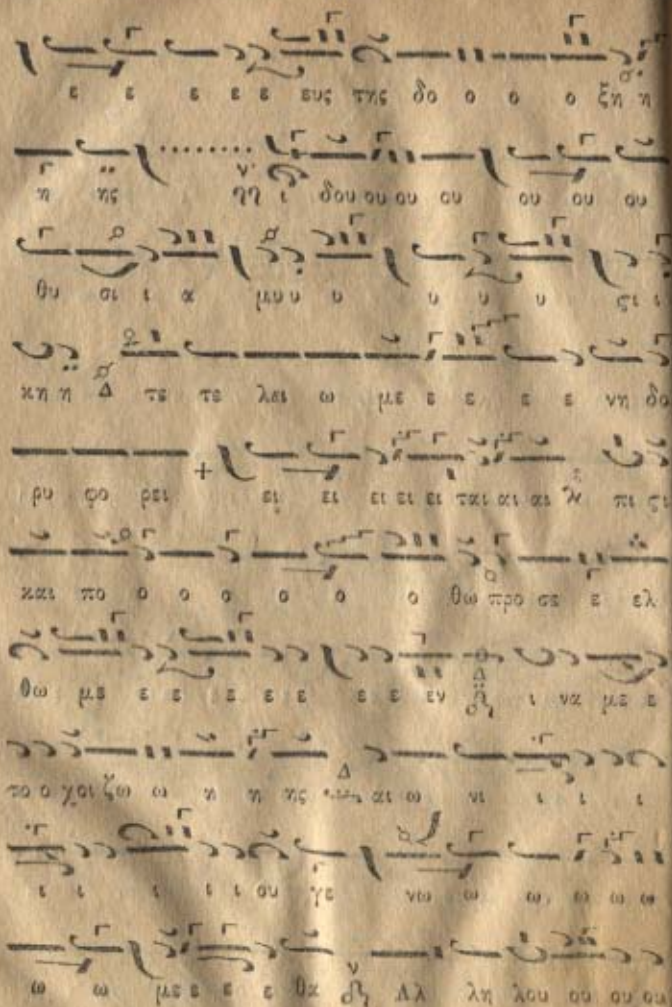 ε ε ε ε ε ευς της δο ο ο ο ξη η
η ης ι δου ου ου ου ου ου ου
θυ σι ι α μυ υ υ υ υ υ ςι ι
κη η Δ τε τε λει ω με ε ε ε ε νη δο
ρυ φο ρει + ει ει ει ει ει ται αι αι πι ςι
και πο ο ο ο ο ο ο θω προ σε ε ελ
θω με ε ε ε ε ε ε ε εν Δ ι να με ε
το ο χοι ζω ω η η ης Δ αι ω νι ι ι ι
ι ι ι ι ι ου γε νω ω ω, ω ω ω
ω ω με ε ε ε θα ν Αλ λη λου ου ου ου